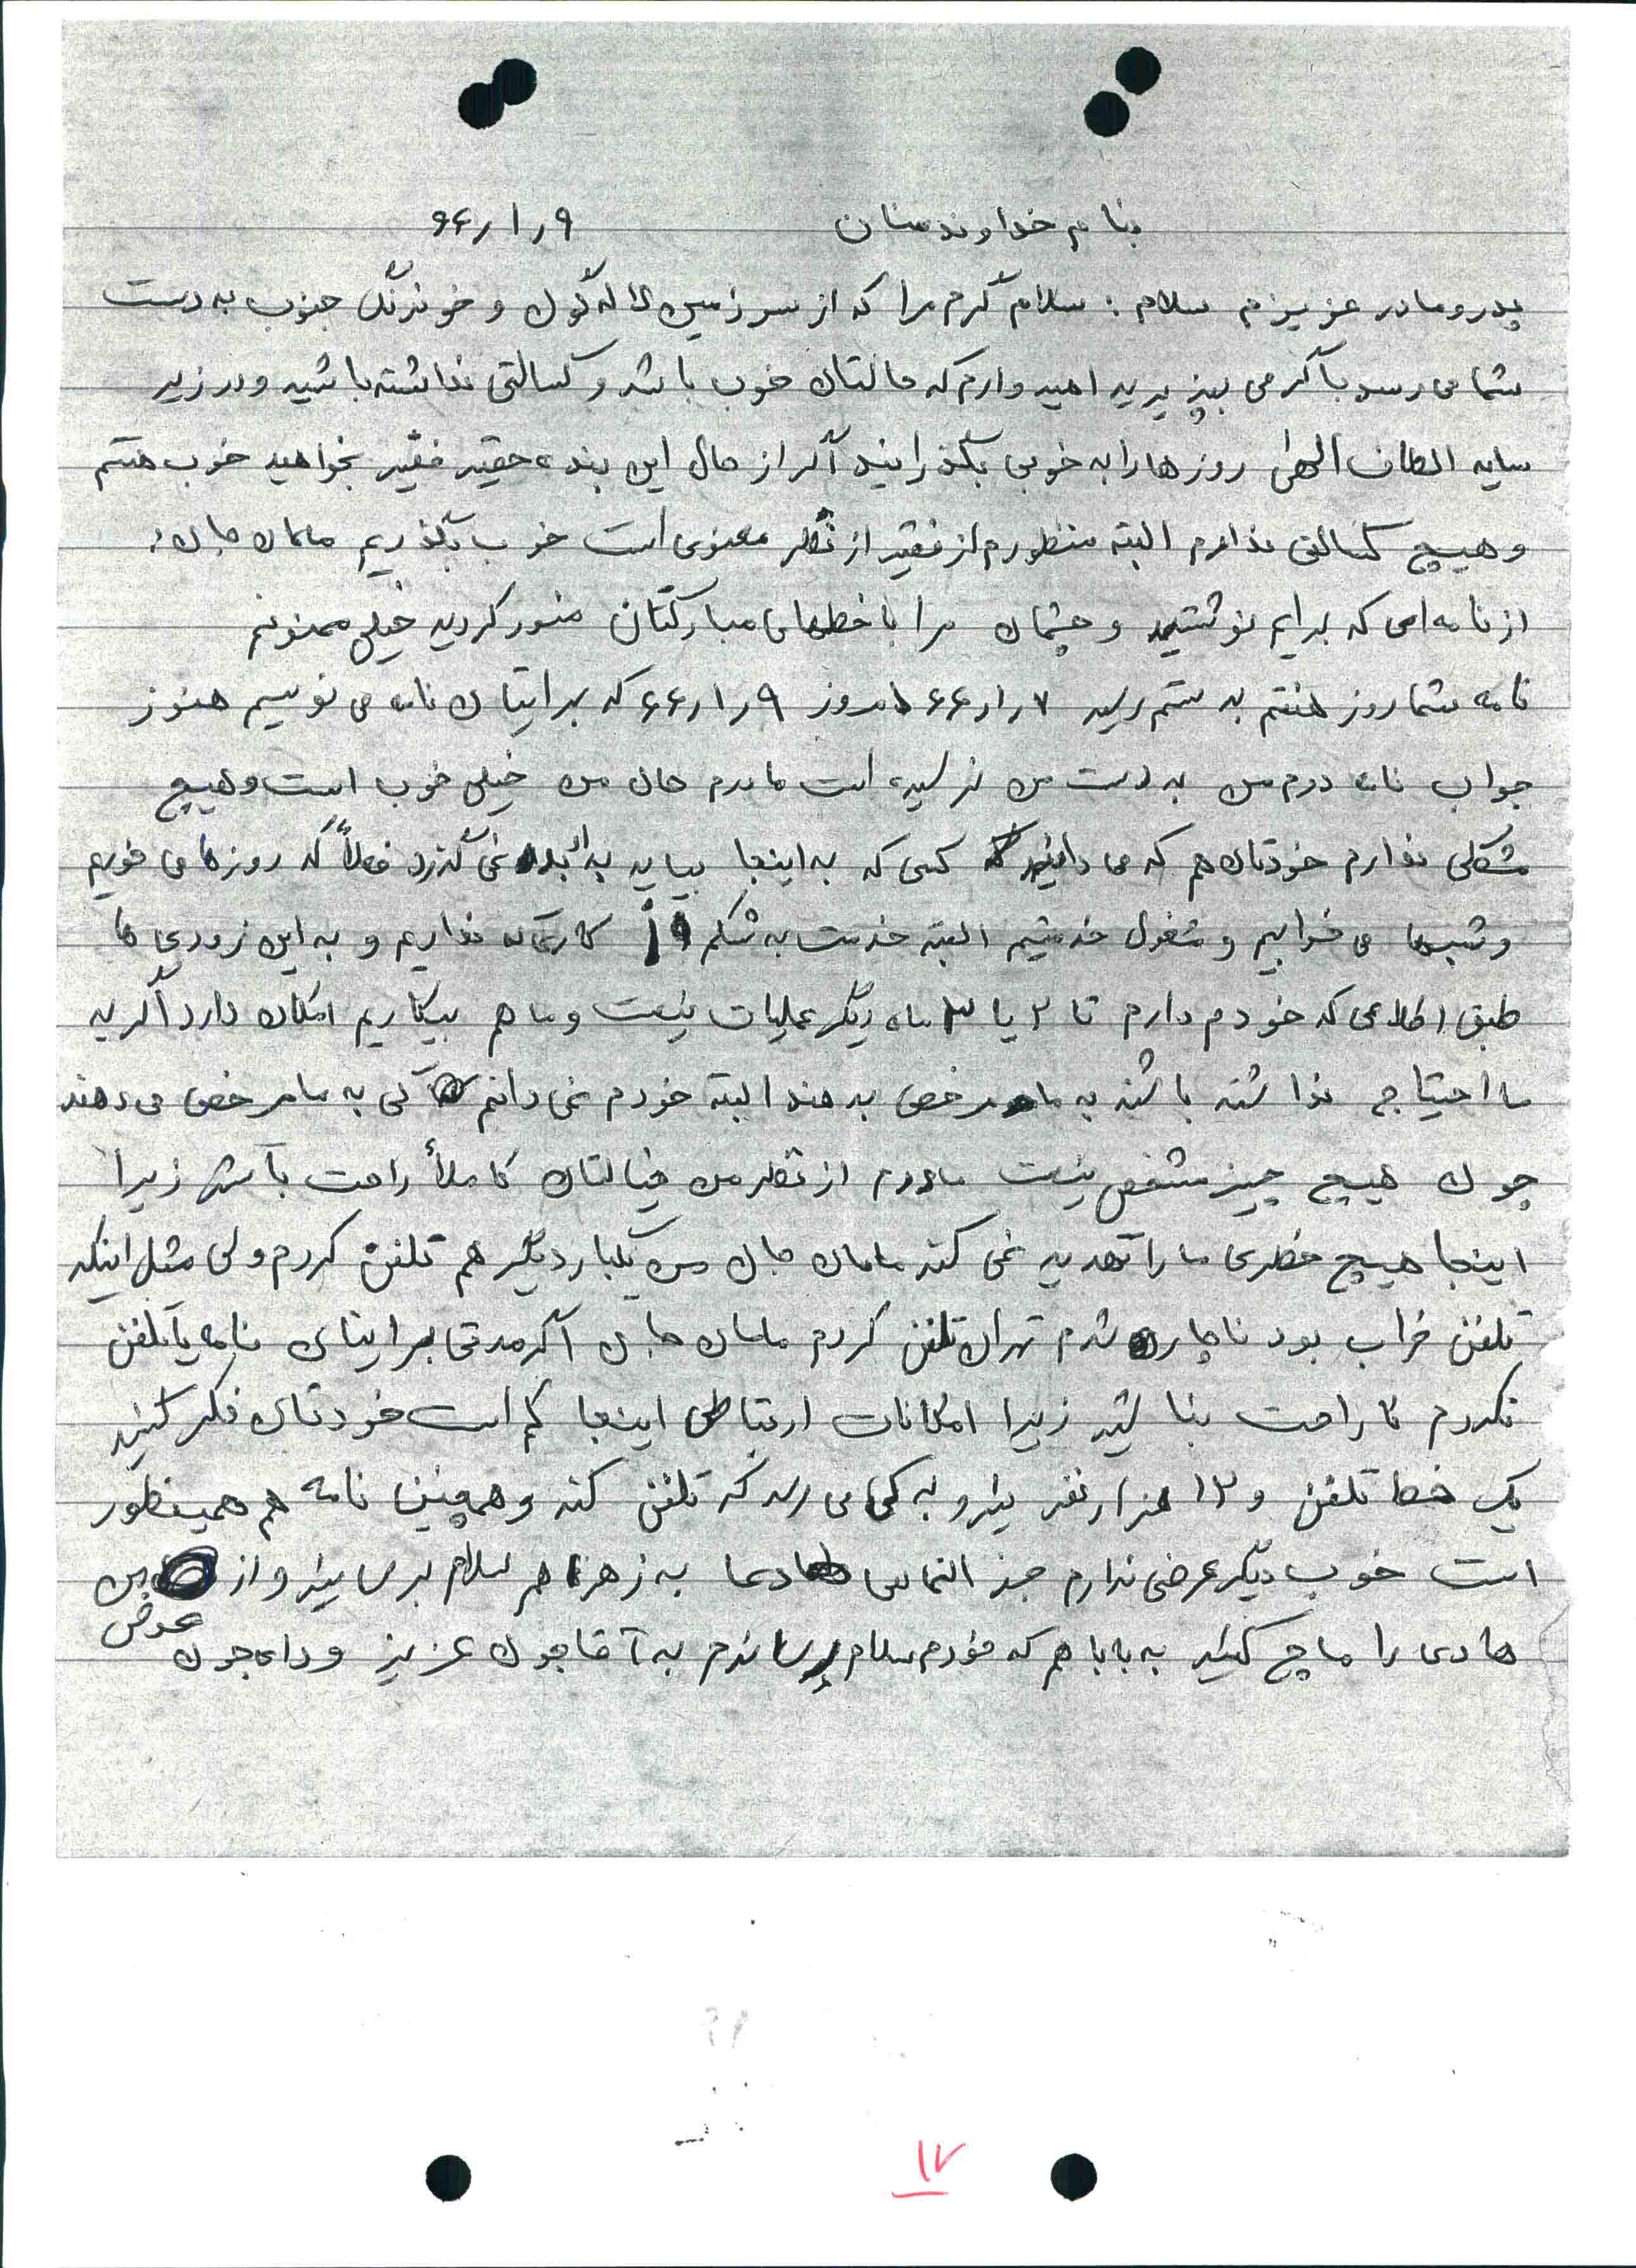 بنام خداوند منان ۹ر۱ر۶۶
پدر و مادر عزیزم سلام : سلام گرم مرا که از سرزمین لاله گون و خونرنگ جنوب به دست
شما می رسد باگرمی بپزیرید امید وارم که حالتان خوب باشد و کسالتی نداشته باشید و در زیر
سایه الطاف الهی روزها را به خوبی بگذرانید اگر از حال این بنده حقیر فقیر بخواهید خوب هستم
و هیچ کسالتی ندارم البته منظورم از فقیر از نظر معنوی است خوب بگذریم مامان جان
از نامه امی که برایم نوشتید و چشمان مرا با خطهای مبارکتان منور کردید خیلی ممنونم
نامه شما روز هفتم بدستم رسید ۷ر۱ر۶۶ امروز ۹ر۱ر۶۶ که برایتان نامه می نویسم هنوز
جواب نامه دوم من به دست من نرسیده است مادرم حال من خیلی خوب است و هیچ
مشکلی ندارم خودتان هم که می دانید کسی که به اینجا بیاید به او بد نمی گذرد فعلاً که روزها می خوریم
و شبها می خوابیم و مشغول خدمتیم البته خدمت به شکم کاری که نداریم و به این زودی ها
طبق اطلاعی که خودم دارم تا ۲ یا ۳ ماه دیگر عملیات نیست و ما هم بیکاریم امکان دارد اگر به
ما احتیاج نداشته باشند به ما مرخصی بدهند البته خودم نمی دانم کی به ما مرخصی می دهند
چون هیچ چیز مشخص نیست مادرم از نظر من خیالتان کاملأ راحت باشد زیرا
اینجا هیچ خطری ما را تهدید نمی کند مامان جان من یکبار دیگر هم تلفن کردم ولی مثل اینکه
تلفن خراب بود ناچار شدم تهران تلفن کردم مامان جان اگر مدتی برایتان نامه یا تلفن
نکردم ناراحت نباشید زیرا امکانات ارتباطی اینجا کم است خودتان فکر کنید
یک خط تلفن و ۱۲ هزار نفر نیرو به کی می رسد که تلفن کند و همچنین نامه هم همینطور
است خوب دیگر عرضی ندارم جز التماس دعا به زهرا هم سلام برسانید و از عوض من
هادی را ماچ کنید به بابا هم که خودم سلام رساندم به آقاجون عزیز و دای جون
۱۷